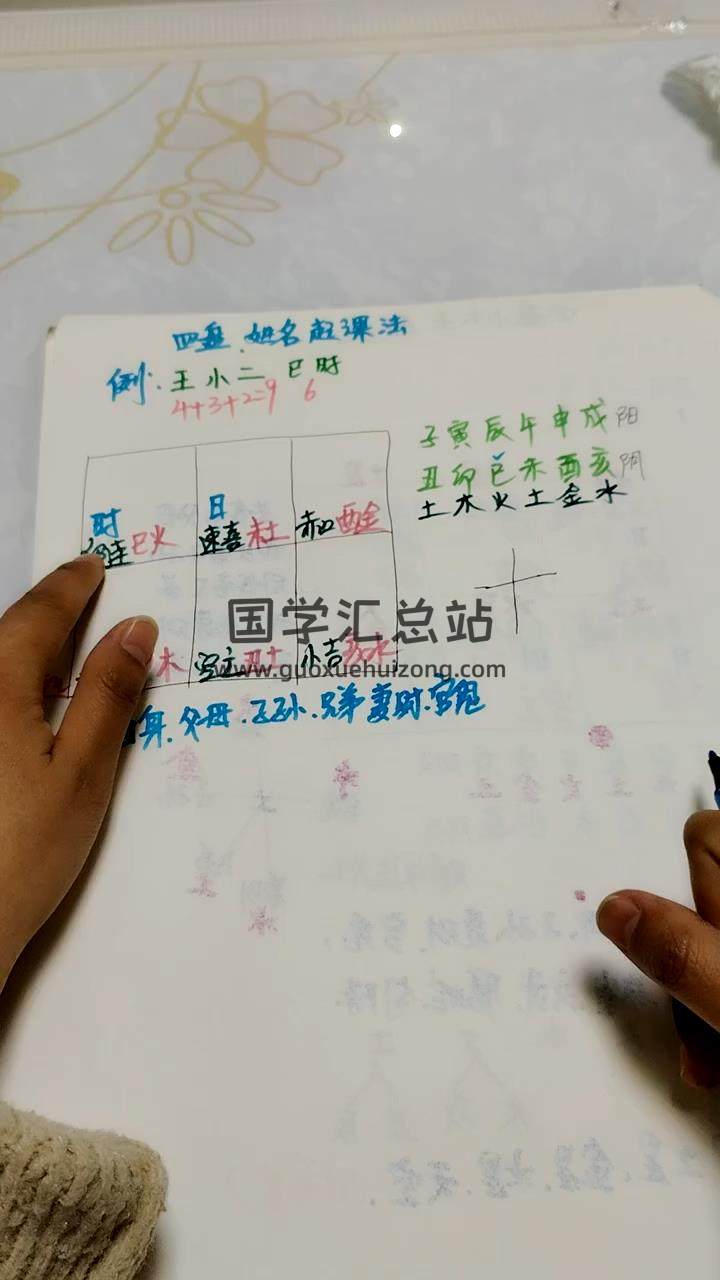 四盘.姓名起课法
例.王小二 巳时
4+3+2=9 6
子寅辰午申戌阳
丑卯巳未酉亥阴
土木火土金水
时 日
留连巳火 速喜未土 赤口酉金
国学汇总站
木 空亡丑土 小吉亥水
www.guoxuehuizong.com
身.父母.子孙.兄弟 妻财.官鬼